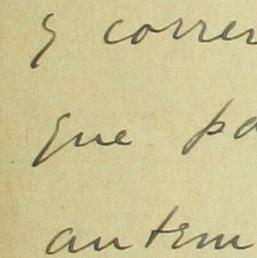 y correr
que pa
antem